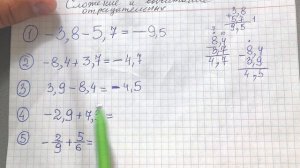 Сложение и вычитание
отрицательных
① −3,8−5,7 = −9,5
② −8,4+3,7 = −4,7
③ 3,9−8,4 = −4,5
④ −2,9+7, =
⑤ −2/9+5/6=
3,8
+5,7
9,5
8,4
3,7
4,7
−8,4
3,9
4,5